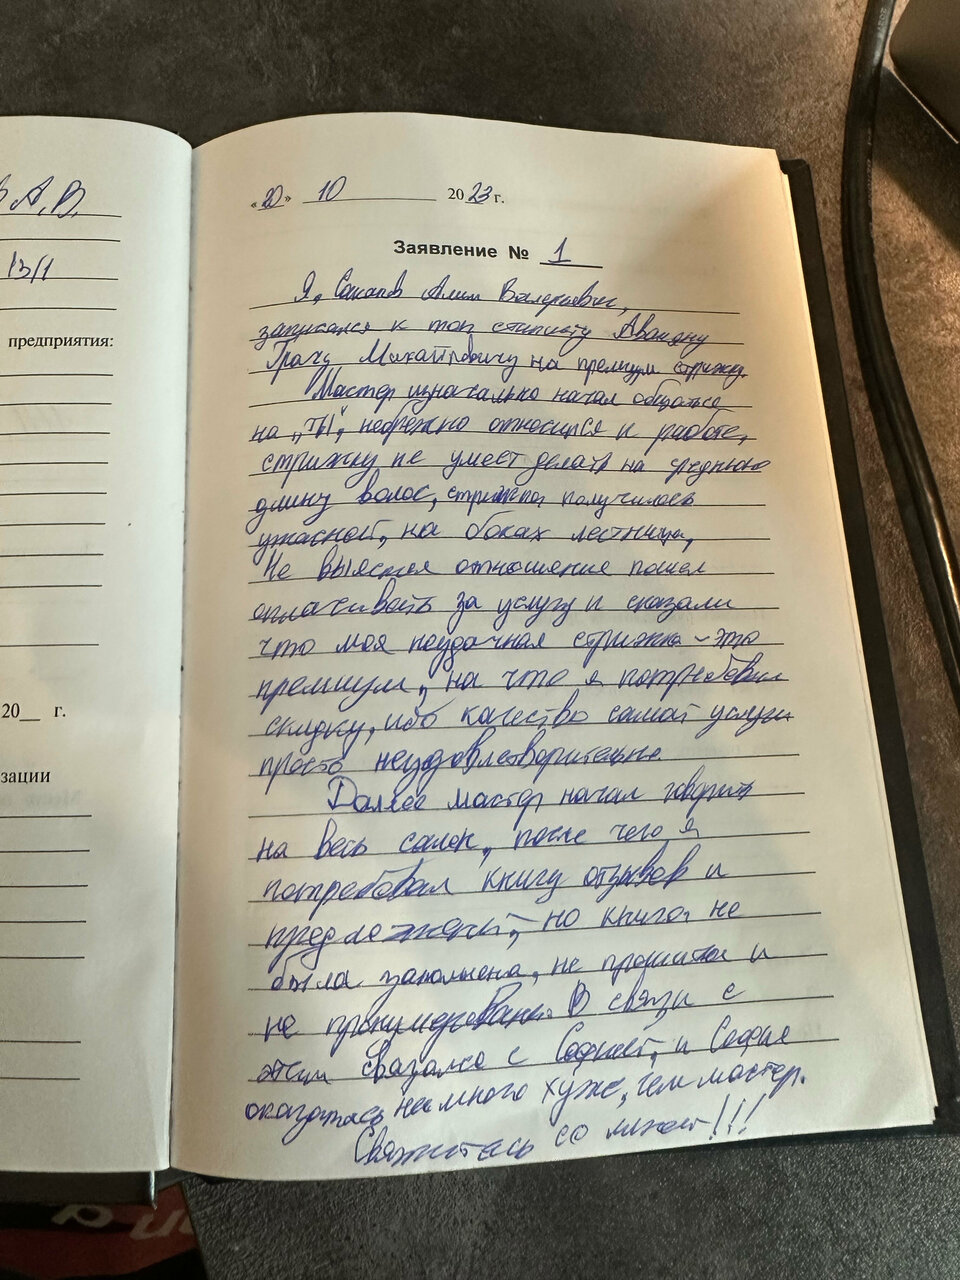 А.В.
13/1
предприятия:
20__ г.
зации
«20» 10 2023 г.
Заявление № 1
Я, Алим Валерьевич,
записался к топ стилисту Авакяну
Грачу Михайловичу на премиум стрижку.
Мастер изначально начал общаться
на „ты", небрежно относился к работе,
стрижку не умеет делать на среднюю
длину волос, стрижка получилась
ужасной, на боках лестница,
Не выясняя отношение пошел
оплачивать за услугу и сказали
что моя неудачная стрижка - это
премиум, на что я потребовал
скидку, ибо качество самой услуги
просто неудовлетворительно.
Далее мастер начал говорить
на весь салон, после чего я
потребовал книгу отзывов и
предложений, но книга не
была заполнена, не прошита и
не пронумерована. В связи с
этим связался с Софией, и София
оказалась немного хуже, чем мастер.
Свяжитесь со мной!!!